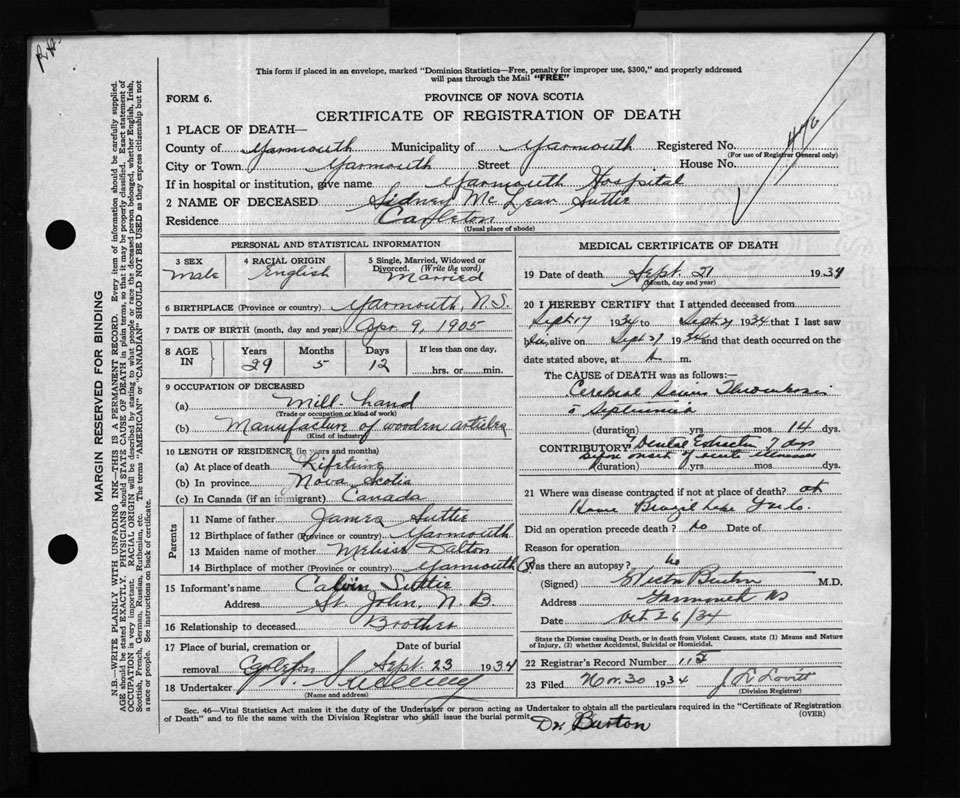 This form if placed in an envelope, marked "Dominion Statistics—Free, penalty for improper use, $300," and properly addressed
will pass through the Mail "FREE"
FORM 6.
PROVINCE OF NOVA SCOTIA
CERTIFICATE OF REGISTRATION OF DEATH
1 PLACE OF DEATH—
County of Yarmouth Municipality of Yarmouth Registered No.
(For use of Registrar General only)
City or Town Yarmouth Street House No.
If in hospital or institution, give name Yarmouth Hospital
2 NAME OF DECEASED Sidney McLean Suttie
Residence Carleton
(Usual place of abode)
PERSONAL AND STATISTICAL INFORMATION
3 SEX 4 RACIAL ORIGIN 5 Single, Married, Widowed or
Divorced. (Write the word)
Male English Married
6 BIRTHPLACE (Province or country) Yarmouth, N.S.
7 DATE OF BIRTH (month, day and year) Apr. 9, 1905
8 AGE IN Years Months Days If less than one day,
29 5 12 hrs. or min.
9 OCCUPATION OF DECEASED
(a) Mill-hand
(Trade or occupation or kind of work)
(b) Manufacture of wooden articles
(Kind of industry)
10 LENGTH OF RESIDENCE (in years and months)
(a) At place of death Lifetime
(b) In province Nova Scotia
(c) In Canada (if an immigrant) Canada
Parents
11 Name of father James Suttie
12 Birthplace of father (Province or country) Yarmouth
13 Maiden name of mother Melissa Dalton
14 Birthplace of mother (Province or country) Yarmouth Co.
15 Informant's name Calvin Suttie
Address St. John, N.B.
16 Relationship to deceased Brother
17 Place of burial, cremation or Date of burial
removal Carleton Sept. 23 1934
18 Undertaker
(Name and address)
MEDICAL CERTIFICATE OF DEATH
19 Date of death Sept. 21 1934
(Month, day and year)
20 I HEREBY CERTIFY that I attended deceased from
Sept 17 1934 to Sept 21 1934 that I last saw
him alive on Sept 21 1934 and that death occurred on the
date stated above, at A m.
The CAUSE of DEATH was as follows:—
Cerebral Sinus Thrombosis
Septicemia
(duration) yrs mos 14 dys.
CONTRIBUTORY Dental Extraction 7 days
before onset of acute illness
(duration) yrs mos. dys.
21 Where was disease contracted if not at place of death? at
Home Brazil Lake
Did an operation precede death? No Date of
Reason for operation
Was there an autopsy? No
(Signed) Burton M.D.
Address Yarmouth NS
Date Oct 26/34
State the Disease causing Death, or in death from Violent Causes, state (1) Means and Nature
of Injury, (2) whether Accidental, Suicidal or Homicidal.
22 Registrar's Record Number 115
23 Filed Nov. 30 1934 J L Lovitt
(Division Registrar)
Sec. 46—Vital Statistics Act makes it the duty of the Undertaker or person acting as Undertaker to obtain all the particulars required in the "Certificate of Registration
of Death" and to file the same with the Division Registrar who shall issue the burial permit.
(OVER)
Dr Burton
MARGIN RESERVED FOR BINDING
N.B.—WRITE PLAINLY WITH UNFADING INK—THIS IS A PERMANENT RECORD. Every item of information should be carefully supplied.
AGE should be stated EXACTLY. PHYSICIANS should STATE CAUSE OF DEATH in plain terms, so that it may be properly classified. Exact statement of
OCCUPATION is very important. RACIAL ORIGIN will be described by stating to what people or race the deceased person belonged, whether English, Irish,
Scottish, French, German, Russian, Ruthenian, etc. The terms "AMERICAN" or "CANADIAN" SHOULD NOT BE USED as they express citizenship but not
a race or people. See instructions on back of certificate.